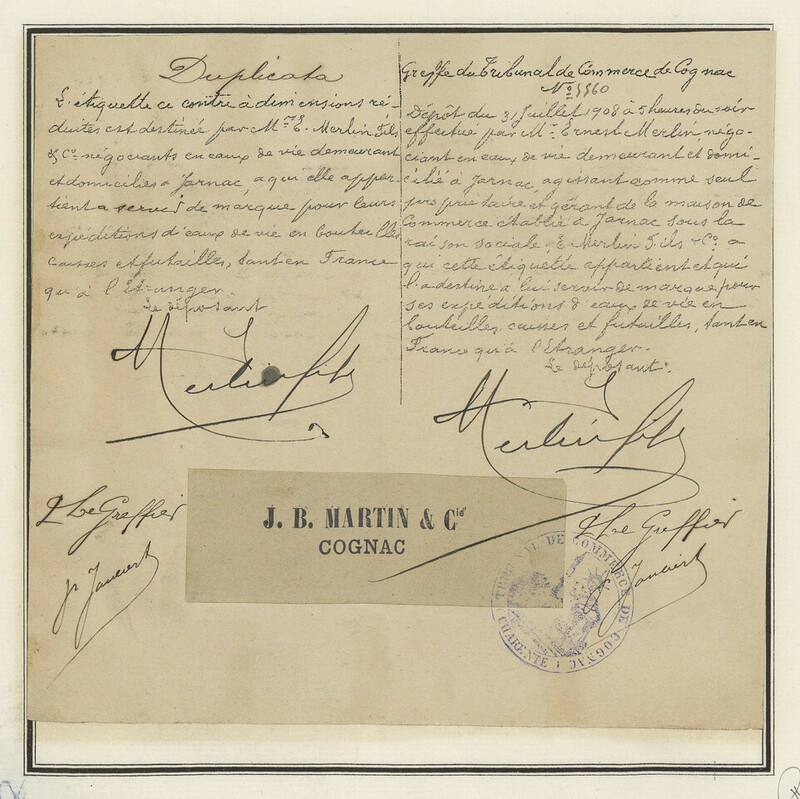 Duplicata
L'étiquette ci contre à dimensions ré-
duites est destinée par Mrs E. Merlin Fils
& Co. négociants en eaux de vie demeurant
et domiciliés à Jarnac, a qui elle appar-
tient a servir de marque pour leurs
expéditions d'eaux de vie en bouteilles
caisses et futailles, tant en France
qu'à l'Etranger
Le déposant
Merlin fils
Le Greffier
Greffe du Tribunal de Commerce de Cognac
No 5560
Dépôt du 31 Juillet 1908 à 5 heures du soir
effectué par Mr Ernest Merlin, négo-
ciant en eaux de vie demeurant et domi-
cilié à Jarnac, agissant comme seul
propriétaire et gérant de la maison de
Commerce établie à Jarnac sous la
raison sociale E. Merlin Fils & Co. a
qui cette étiquette appartient et qui
l'a destine a lui servir de marque pour
ses expéditions d'eaux de vie en
bouteilles, caisses et futailles, tant en
France qu'à l'Etranger.
Le déposant.
Merlin fils
Le Greffier
J. B. MARTIN & Cie
COGNAC
TRIBUNAL DE COMMERCE DE COGNAC
CHARENTE